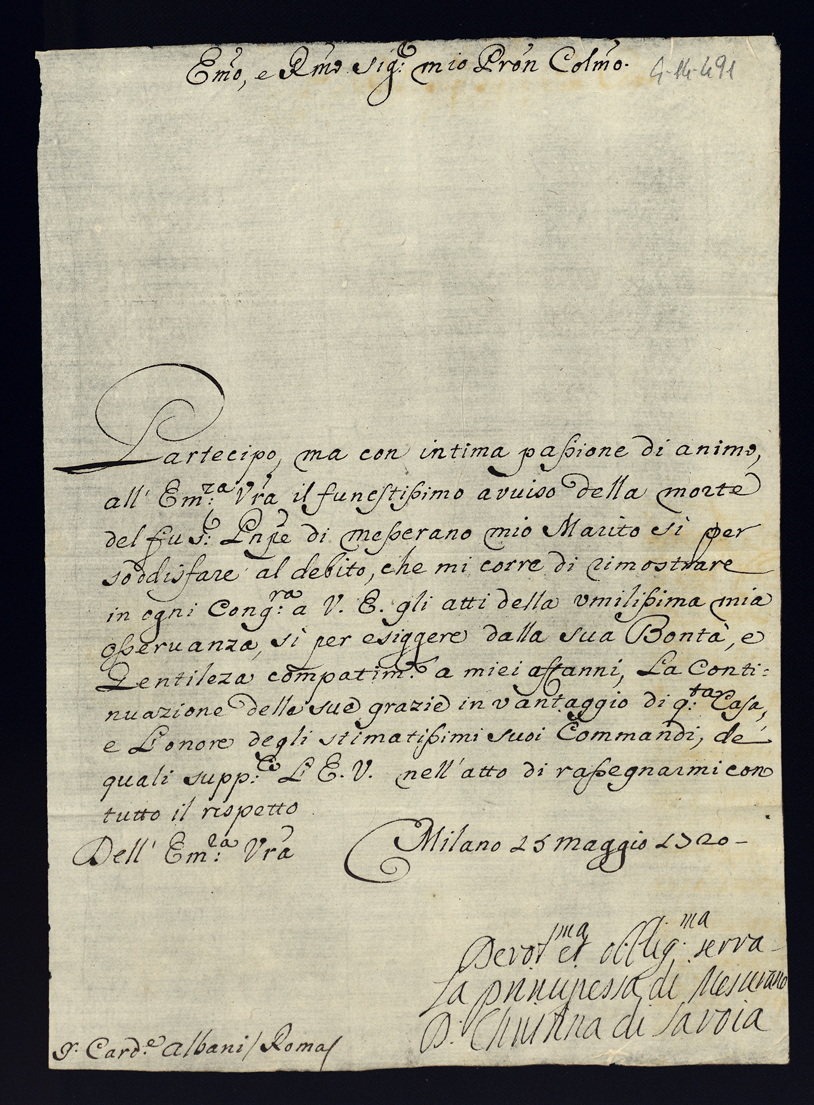 Em̃o, e Rm̃o Sig.r mio Pron̄ Colm̃o.
4-14-491
Partecipo, ma con intima paßione di animo,
all' Em.za Vr̃a il funestißimo avviso della morte
del fu S.r Pnp̃e di Meßerano mio Marito sì per
soddisfare al debito, che mi corre di rimostrare
in ogni Cong.ra a V. E. gli atti della vmilißima mia
oßeruanza, sì per esiggere dalla sua Bontà, e
Gentileza compatim.to a miei affanni, La Conti:
nuazione delle sue grazie in vantaggio di q.ta Casa,
e L'onore degli stimatißimi suoi Commandi, de'
quali supp.co L'E. V. nell'atto di raßegnarmi con
tutto il rispetto
Dell' Em.za Vr̃a Milano 25 maggio 1720-
Devot.ma et obblig.ma serva
La principessa di Messerano
D. Christina di Savoia
S.r Card.e Albani / Roma/